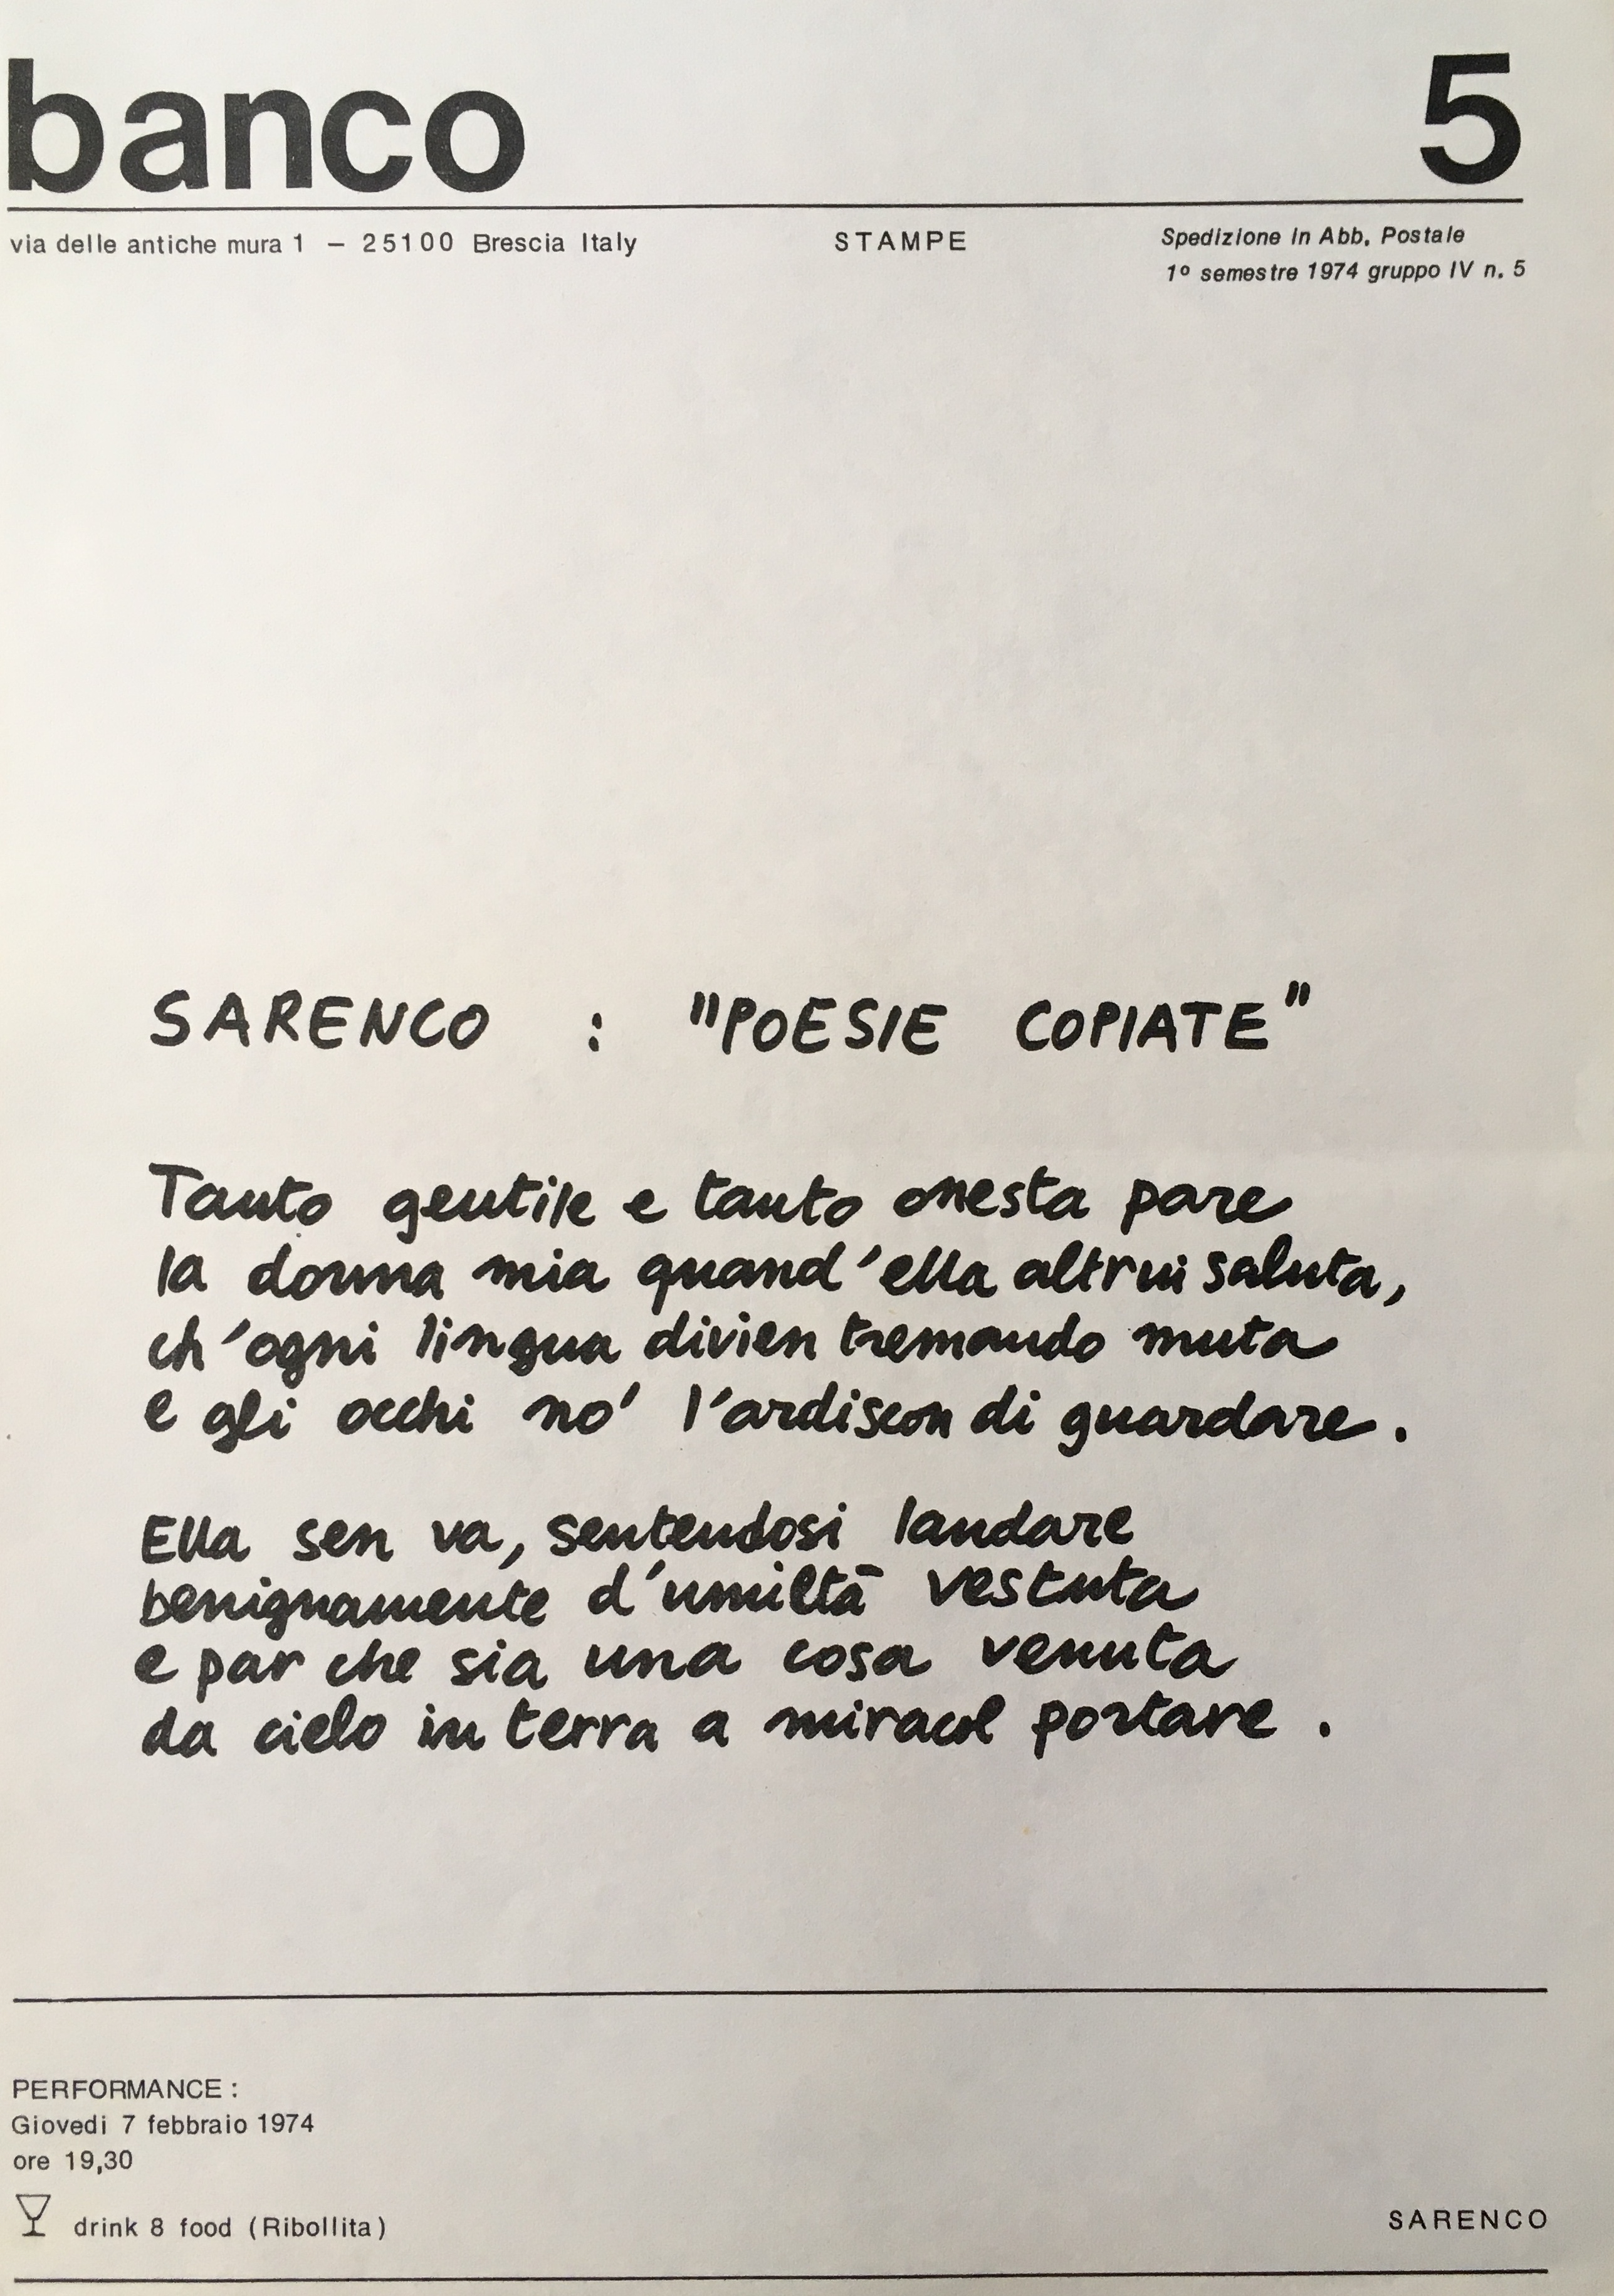 banco 5
via delle antiche mura 1 – 25100 Brescia Italy STAMPE Spedizione in Abb. Postale
1º semestre 1974 gruppo IV n. 5
SARENCO : "POESIE COPIATE"
Tanto gentile e tanto onesta pare
la donna mia quand'ella altrui saluta,
ch'ogni lingua divien tremando muta
e gli occhi no' l'ardiscon di guardare.
Ella sen va, sentendosi laudare
benignamente d'umiltà vestuta
e par che sia una cosa venuta
da cielo in terra a miracol portare.
PERFORMANCE :
Giovedi 7 febbraio 1974
ore 19,30
drink 8 food (Ribollita) SARENCO